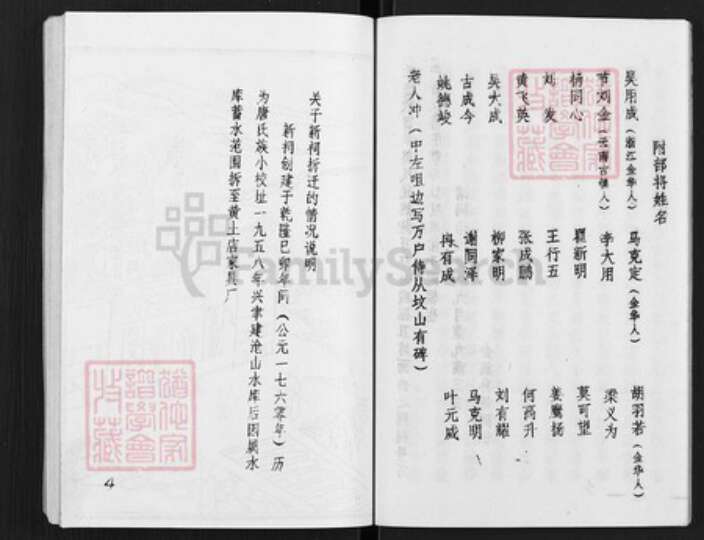 附部将姓名
吴用成（浙江金华人） 马克定（金华人） 胡羽若（金华人）
节刘金（云南古镇人） 李大用 梁义为
杨同心 瞿新明 莫可望
刘发 王行五 姜鹰扬
黄飞英 张成鹏 何高升
吴大成 柳家明 刘有耀
古成今 谢同泽 马克明
姚德峻 冉有成 叶元威
老人冲（甲左咀边写万户侍从坟山有碑）
关于新祠折迁的情况说明
新祠创建于乾隆已卯年间（公元一七六零年）历
为唐氏族小校址一九五八年兴
建沧山水库后因属水
库蓄水范围拆至黄土店家具厂
4
FamilySearch